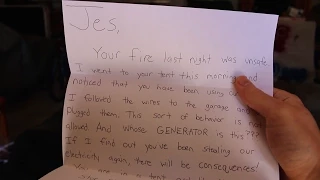 Jes,
Your fire last night was unsafe
I went to your tent this morning and
noticed that you have been using
I followed the wires to the garage and
plugged them. This sort of behavior is no
allowed And whose GENERATOR is this???
If I find out you've been stealing our
electricity again, there will be CONSEQUENCES!
You are in a tent